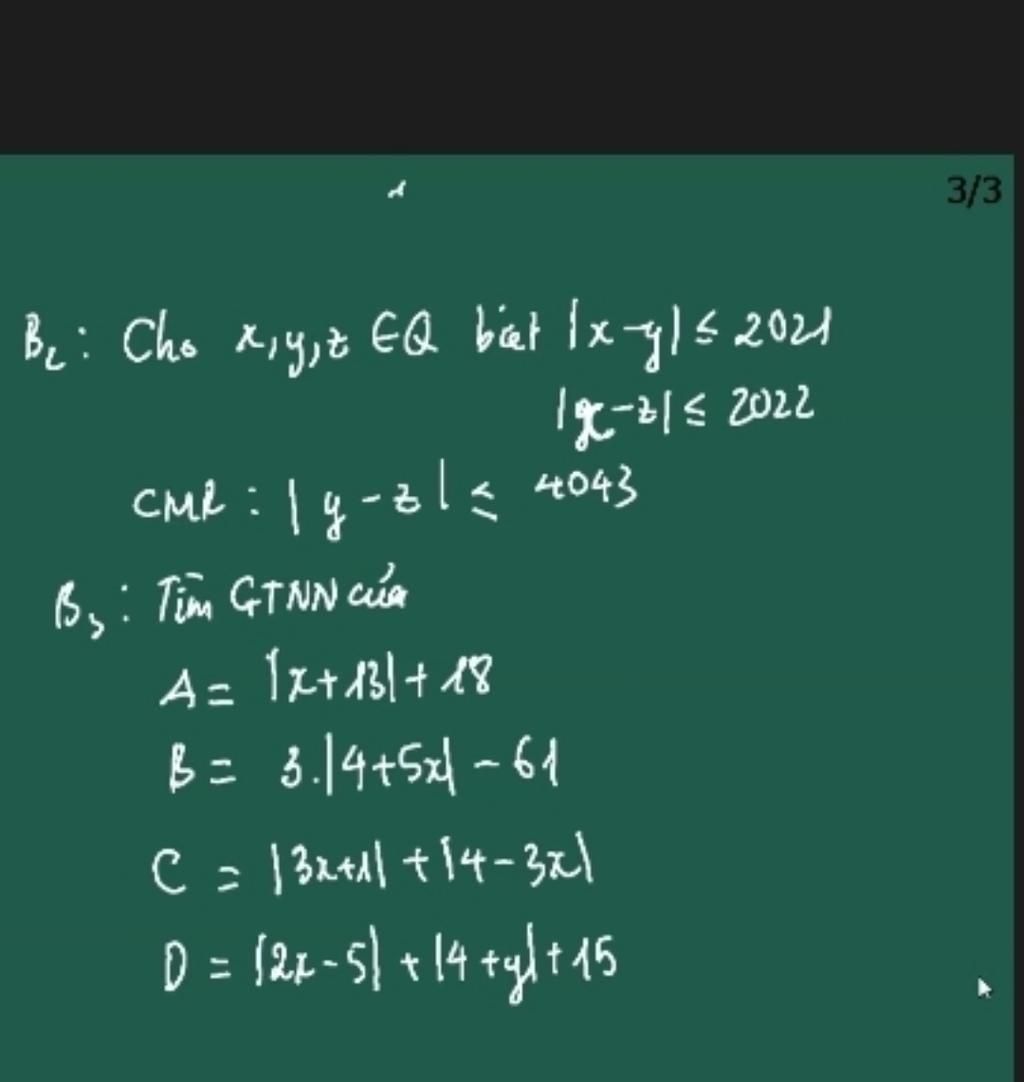 3/3
B₂: Cho x,y,z ∈ Q biết |x-y| ≤ 2021
|x-z| ≤ 2022
CMR: |y-z| ≤ 4043
B₃: Tìm GTNN của
A = |x+13|+18
B = 3.|4+5x| - 61
C = |3x+1| + |4-3x|
D = |2x-5| + |4+y| + 15